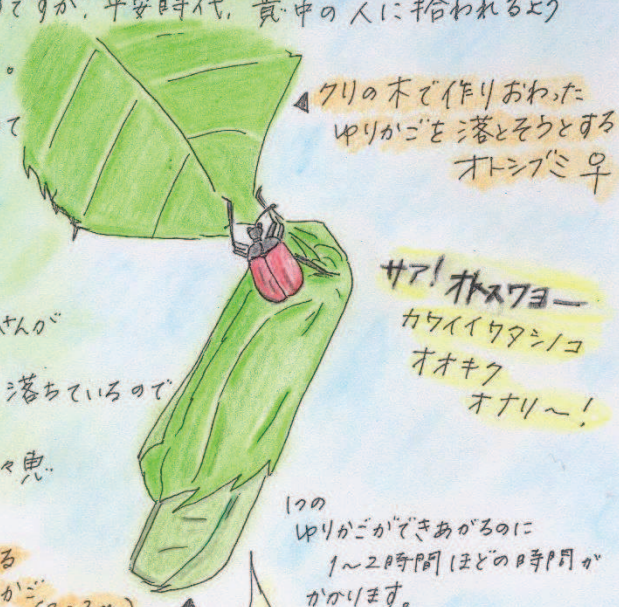 ですが、平安時代、意中の人に拾われるよう
。
て
クリの木で作りおわった
ゆりかごを落とそうとする
オトシブミ♀
サア!オトスワヨー
カワイイワタシノコ
オオキク
オナリ〜!
さんが
落ちているので
々恵
1つの
ゆりかごができあがるのに
1〜2時間ほどの時間が
かかります。
る
かご